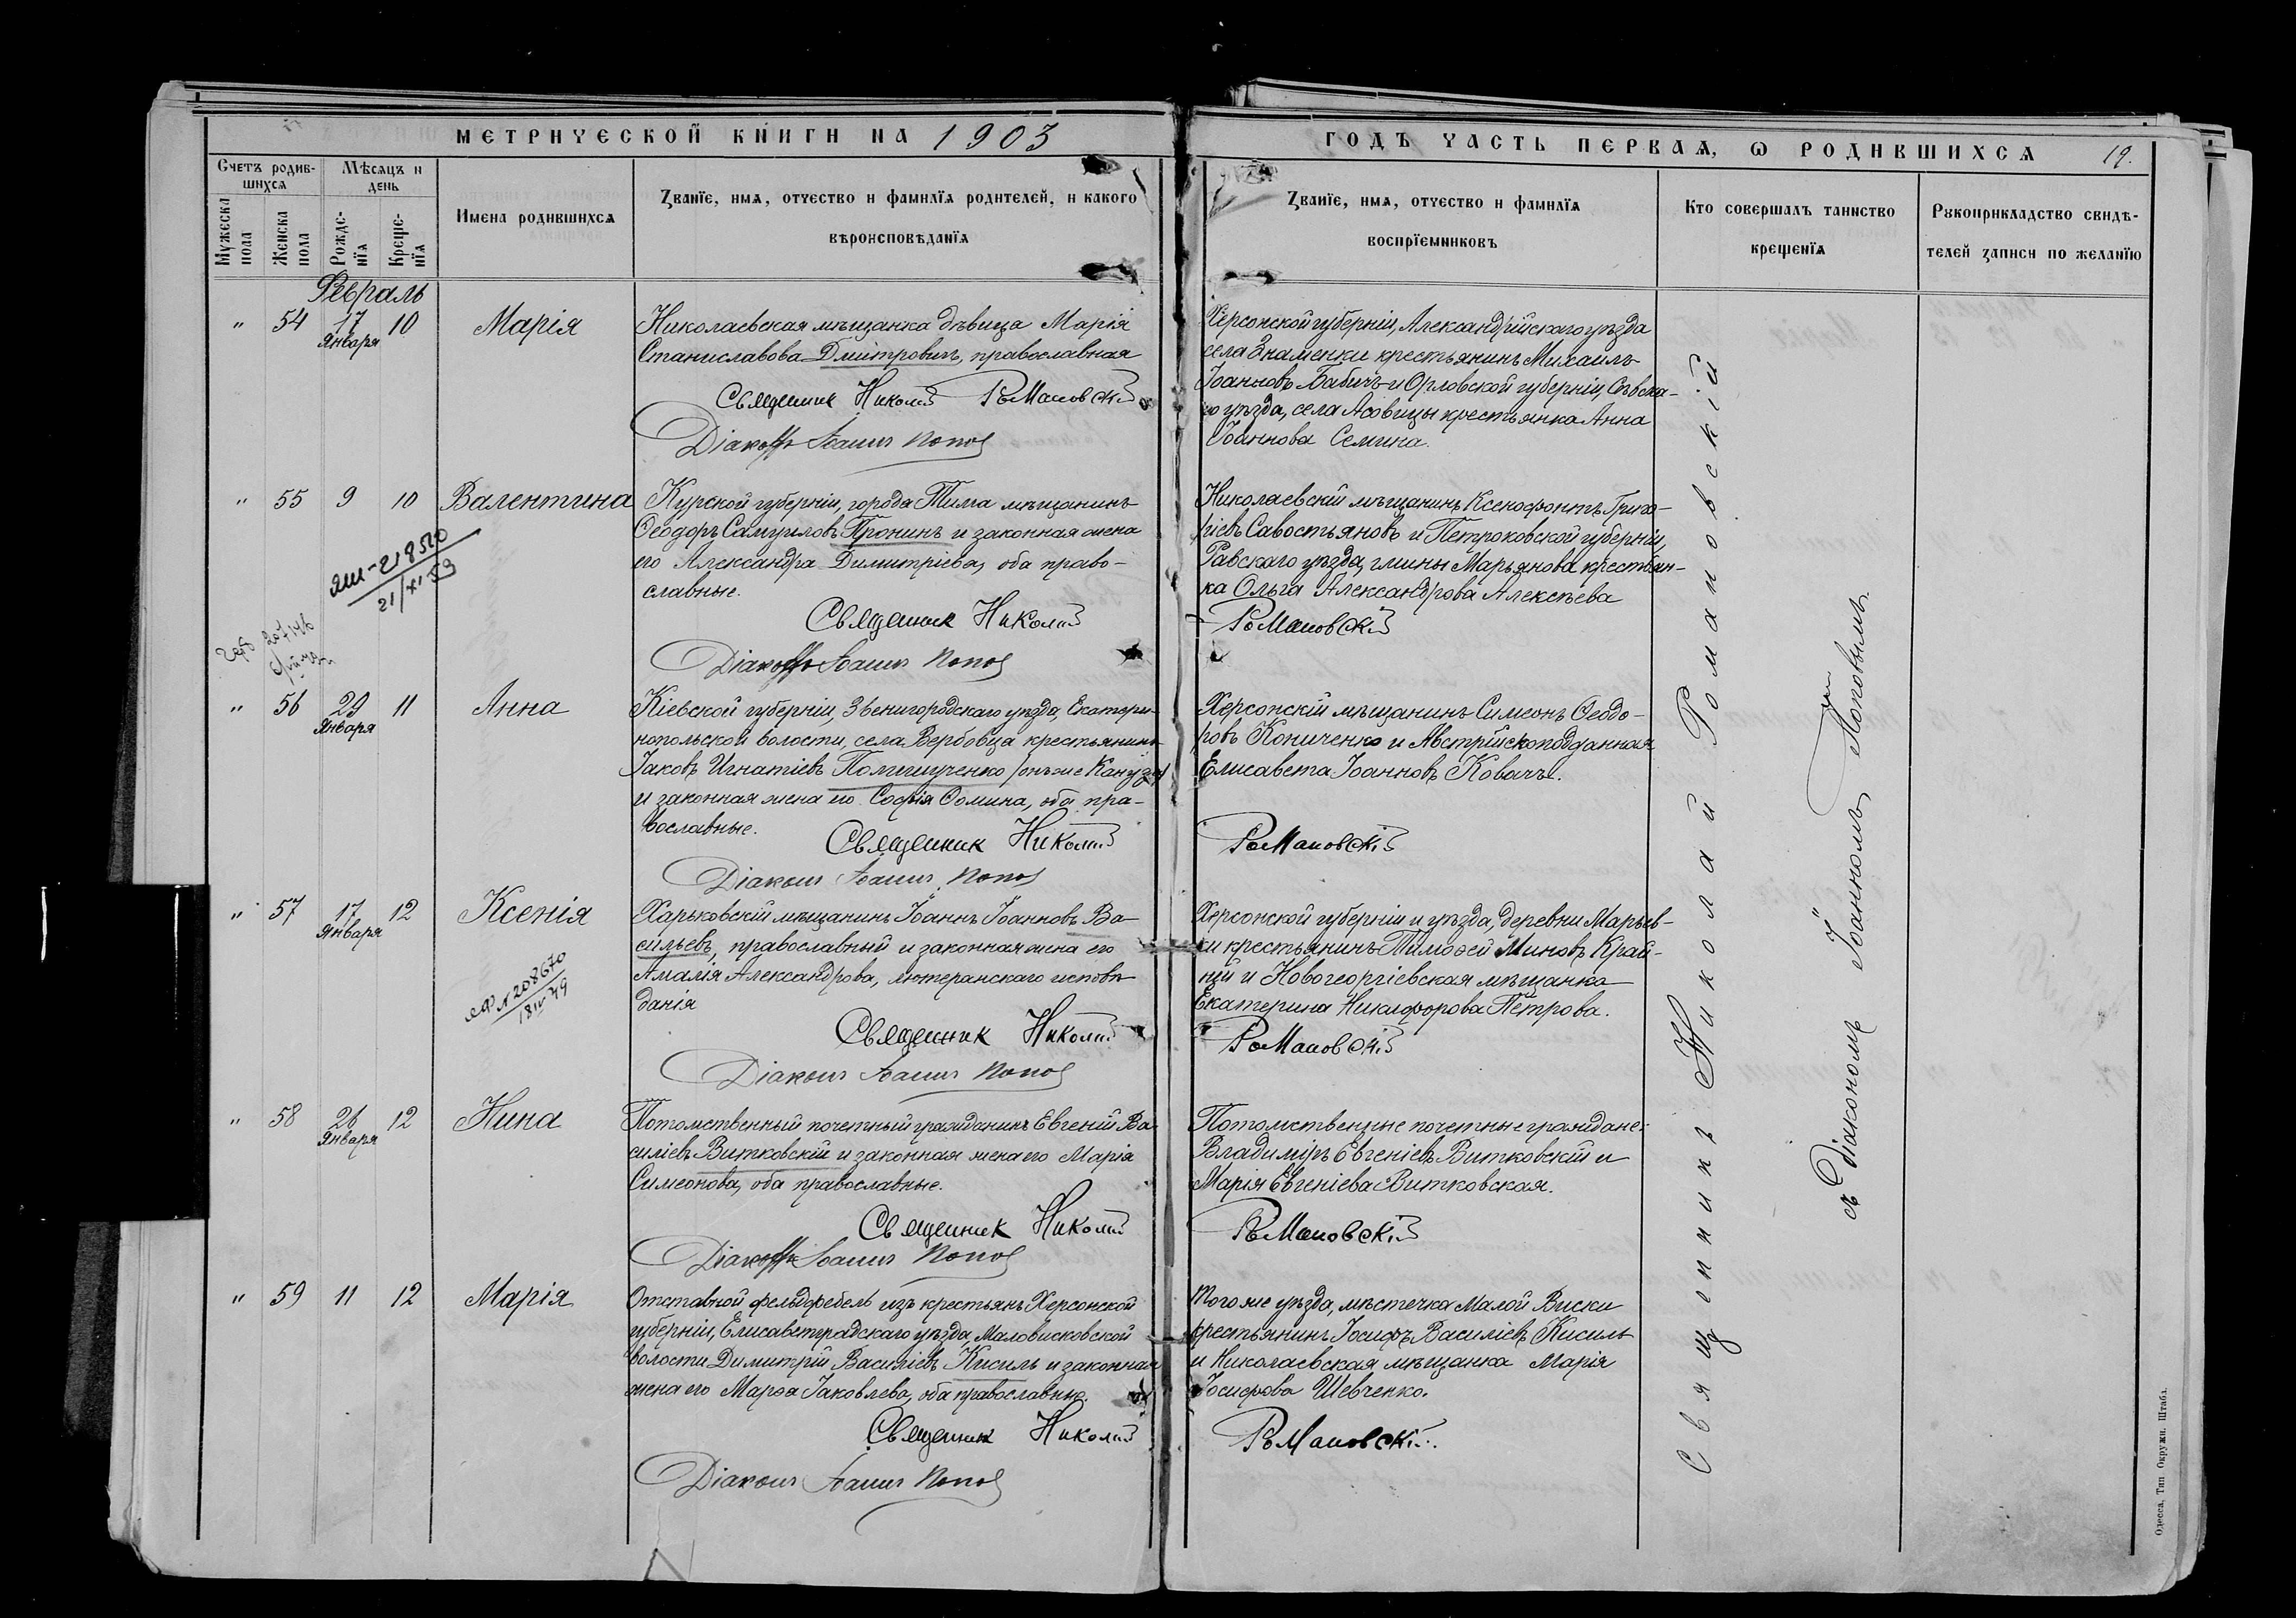 МЕТРИЧЕСКОЙ КНИГИ НА 1903
ГОДЪ ЧАСТЬ ПЕРВАЯ, Ѡ РОДИВШИХСЯ 19.
Счетъ родив-
шихся
Мужеска
пола
Женска
пола
Мѣсяцъ и
день
Рожде-
нїя
Креще-
нїя
Имена родившихся
Званїе, имя, отчество и фамилїя родителей, и какого
вѣроисповѣданїя
Званїе, имя, отчество и фамилїя
воспрїемниковъ
Кто совершалъ таинство
крещенїя
Рукоприкладство свидѣ-
телей записи по желанїю
Февраль
" 54 17 Января 10 Марія
Николаевская мѣщанка дѣвица Марія
Станиславова Дмитровичъ, православная
Священник Николай Романовскій
Діаконъ Іоаннъ Попов
Херсонской губерніи, Александрійскаго уѣзда
села Знаменки крестьянинъ Михаилъ
Іоанновъ Бабичъ и Орловской губерніи, Сѣвска-
го уѣзда, села Асовицы крестьянка Анна
Іоаннова Семина.
" 55 9 10 Валентина
21/XI 59
Курской губерніи, города Тима мѣщанинъ
Ѳеодоръ Самуиловъ Пронинъ и законная жена
его Александра Димитріева, оба право-
славные.
Священник Николай
Діаконъ Іоаннъ Попов
Николаевскій мѣщанинъ Ксенофонтъ Григо-
ріевъ Савостьяновъ и Петроковской губерніи,
Равскаго уѣзда, гмины Марьянова крестьян-
ка Ольга Александрова Алексѣева
Романовскій
" 56 29 Января 11 Анна
Кіевской губерніи, Звенигородскаго уѣзда, Екатери-
нопольской волости, села Вербовца крестьянинъ
Іаковъ Игнатіевъ
и законная жена его Софія Ѳомина, оба пра-
вославные.
Священник Николай
Діаконъ Іоаннъ Попов
Херсонскій мѣщанинъ Симеонъ Ѳеодо-
ровъ Кониченко и Австрійскоподданная
Елисавета Іоанновъ Ковачъ.
Романовскій
" 57 17 Января 12 Ксенія
№208670
18 IV 49
Харьковскій мѣщанинъ Іоаннъ Іоанновъ Ва-
сильевъ, православный и законная жена его
Амалія Александрова, лютеранскаго исповѣ-
данія
Священник Николай
Діаконъ Іоаннъ Попов
Херсонской губерніи и уѣзда, деревни Марьев-
ки крестьянинъ Тимоѳей Миновъ Край-
ній и Новогеоргіевская мѣщанка
Екатерина Никифорова Петрова.
Романовскій
" 58 26 Января 12 Нина
Потомственный почетный гражданинъ Евгеній Ва-
силіевъ Витковскій и законная жена его Марія
Симеонова, оба православные.
Священник Николай
Діаконъ Іоаннъ Попов
Потомственные почетные граждане:
Владиміръ Евгеніевъ Витковскій и
Марія Евгеніева Витковская.
Романовскій
" 59 11 12 Марія
Отставной фельдфебель изъ крестьянъ Херсонской
губерніи, Елисаветградскаго уѣзда, Маловисковской
волости Димитрій Василіевъ Кисиль и законная
жена его Марѳа Іаковлева, оба православные.
Священник Николай
Діаконъ Іоаннъ Попов
Того же уѣзда, мѣстечка Малой Виски
крестьянинъ Іосифъ Василіевъ Кисиль
и Николаевская мѣщанка Марія
Іосифова Шевченко.
Романовскій
Священникъ Николай Романовскій
съ Діакономъ Іоанномъ Поповымъ.
Одесса, Тип Окружн. Штаба.